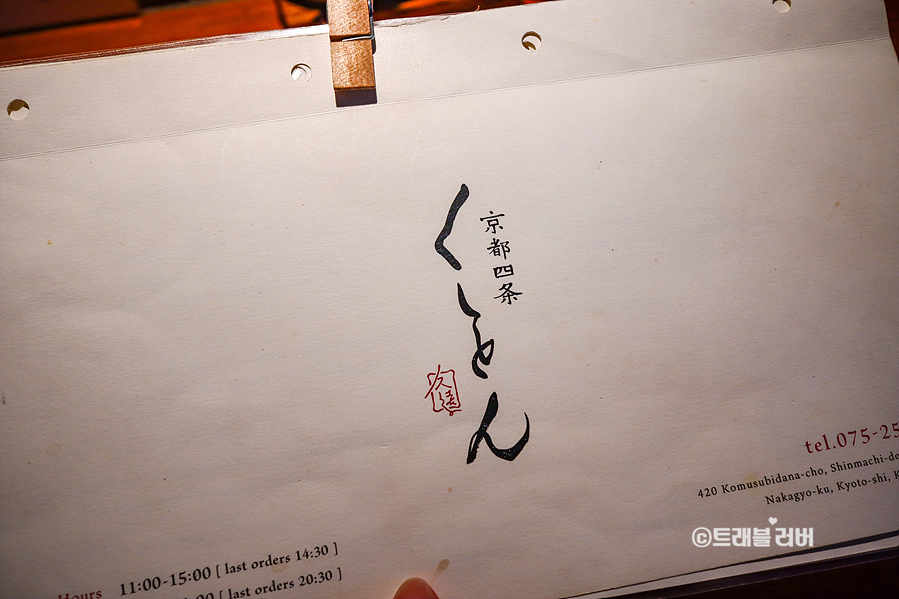 京都四条
くをん
久遠
tel.075-25
420 Komusubidana-cho, Shinmachi-do
Nakagyo-ku, Kyoto-shi, K
Hours 11:00-15:00 [ last orders 14:30 ]
00 [ last orders 20:30 ]
©트래블러버